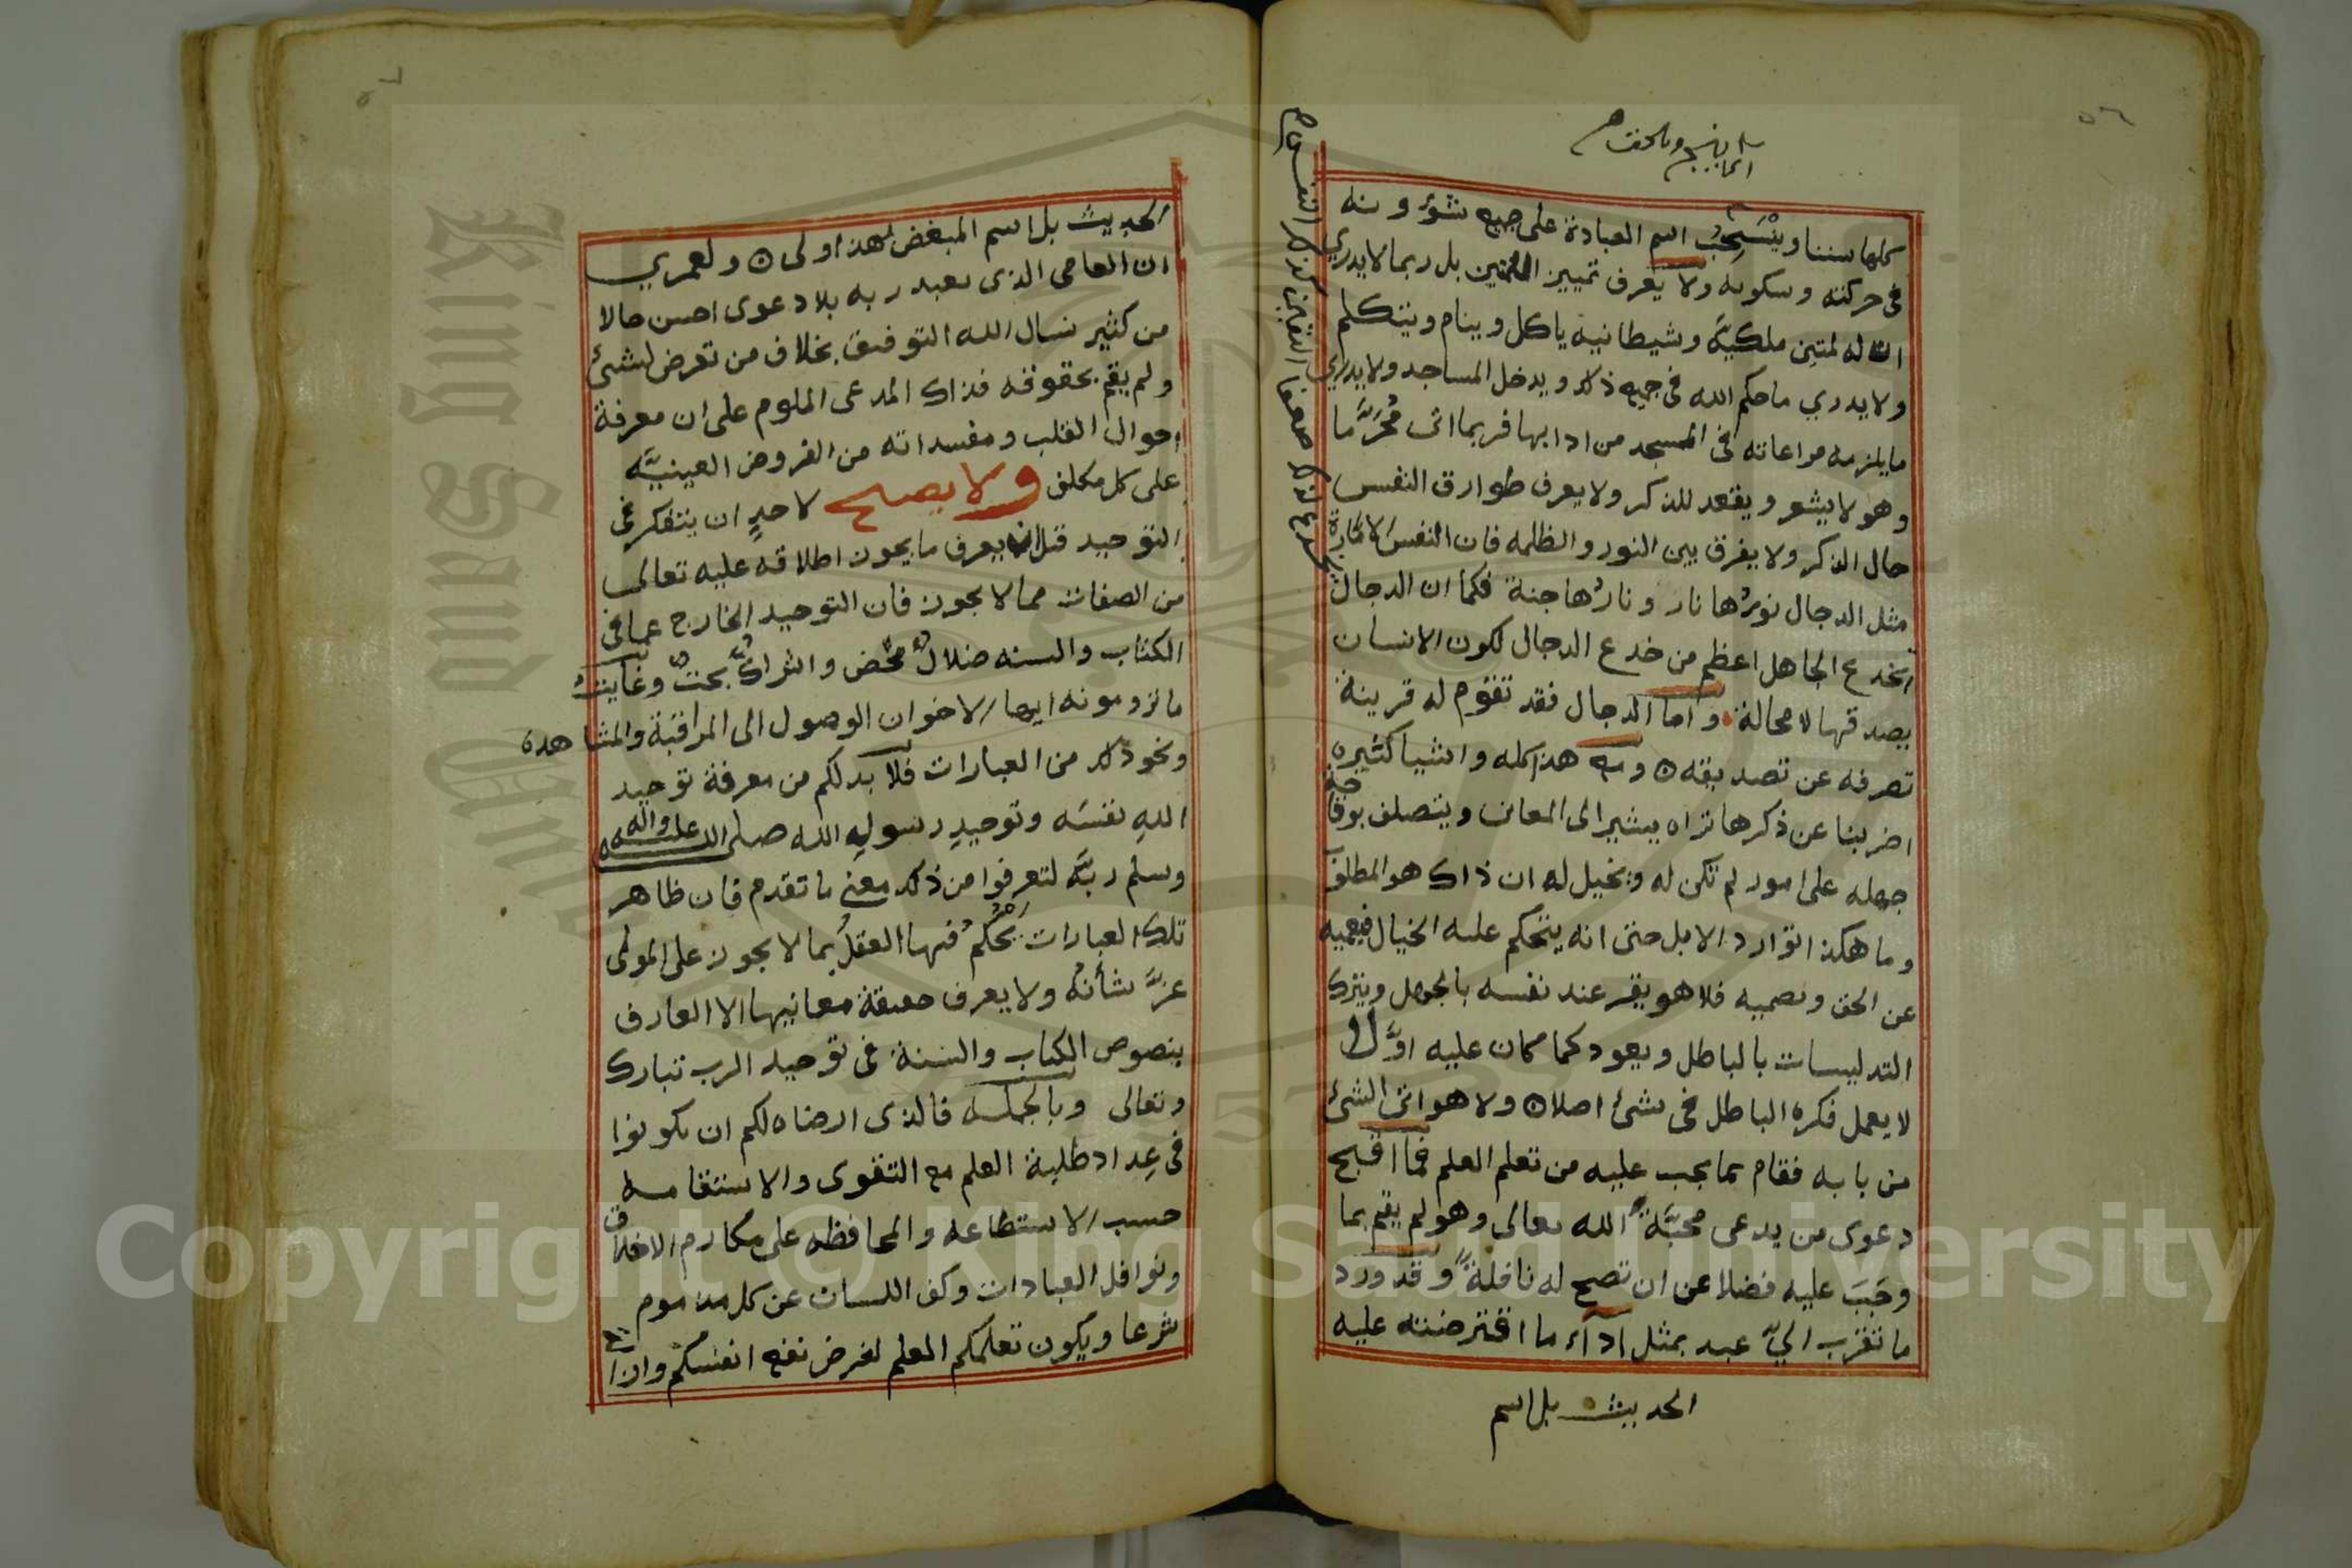 ٥٦
كلها سننا وينسحب اسم العبادة على جميع شؤونه
فى حركته وسكونه ولا يعرف تمييز اللمتين بل ربما لا يدري
ان له لمتين ملكيّه وشيطانيه ياكل وينام ويتكلم
ولا يدري ما حكم الله فى جميع ذلك ويدخل المساجد ولا يدري
ما يلزمه مراعاته فى المسجد من ادابها فربما اتى مُحَرَّما
وهو لا يشعر ويقعد للذكر ولا يعرف طوارق النفس
حال الذكر ولا يفرق بين النور والظلمه فان النفس الامّارة
مثل الدجال نورُها نار ونارُها جنة فكما ان الدجال
بخدع الجاهل اعظم من خدع الدجال لكون الانسان
يصدقها لا محالة واما الدجال فقد تقوم له قرينة
تصرفه عن تصديقه ومع هذا كله واشيا كثيره
اضربنا عن ذكرها تراه يشير الى المعانى ويتصلف بوقاحة
جهله على امور لم تكن له ويخيل له ان ذاك هو المطلوب
وما هكذا توارد الابل حتى انه يتحكم عليه الخيال فيعميه
عن الحق ويصميه فلا هو يقر عند نفسه بالجهل ويترك
التدليسات بالباطل ويعود كما كان عليه اوّلا
لا يعمل فكره الباطل فى شئ اصلا ولا هو اتى الشئ
من بابه فقام بما يجب عليه من تعلم العلم فما اقبح
دعوى من يدعى محبّة الله تعالى وهو لم يقم بما
وجَبَ عليه فضلا عن ان تصح له نافلة وقد ورد
ما تقرب اليّ عبد بمثل ادآء ما افترضته عليه
الحديث بل اسم
الحديث بل اسم المبغض لهذا اولى ولعمري
ان العامى الذى يعبد ربه بلا دعوى احسن حالا
من كثير نسال الله التوفيق بخلاف من تعرض لشئ
ولم يقم بحقوقه فذاك المدعى الملوم على ان معرفة
احوال القلب ومفسداته من الفروض العينيّه
على كل مكلف ولا يصلح لاحدٍ ان يتفكر فى
التوحيد قبل ان يعرف ما يجوز اطلاقه عليه تعالى
من الصفات مما لا يجوز فان التوحيد الخارج عما فى
الكتاب والسنه ضلالٌ محض واشراكٌ بحتٌ وغايت
ما ترومونه ايها الاخوان الوصول الى المراقبة والمشاهدة
ونحو ذلك من العبارات فلا بد لكم من معرفة توحيد
اللهِ نفسَه وتوحيدِ رسولِ الله صلى الله عليه واله
وسلم ربَّه لتعرفوا من ذلك معنى ما تقدم فان ظاهر
تلك العبارات يَحْكُمُ فيها العقلُ بما لا يجوز على المولى
عزَّ شأنُه ولا يعرف حقيقة معانيها الا العارف
بنصوص الكتاب والسنة فى توحيد الرب تبارك
وتعالى وبالجملـه فالذى ارضاه لكم ان تكونوا
فى عِداد طلبة العلم مع التقوى والاستقامـه
حسب الاستطاعه والمحافظه على مكارم الاخلاق
ونوافل العبادات وكف اللسان عن كل مذموم
شرعا ويكون تعلمكم العلم لغرض نفع انفسكم واذا
King Saud University
1957
Copyright © King Saud University